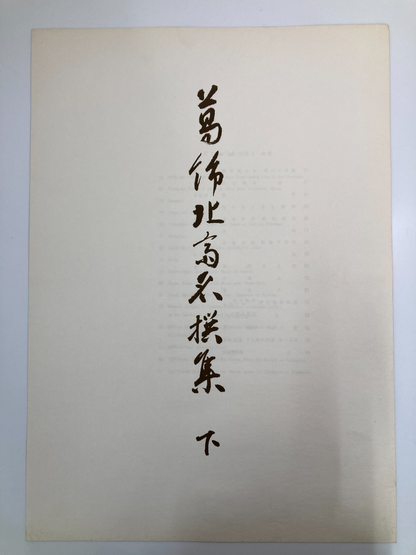 葛飾北斎名撰集 下